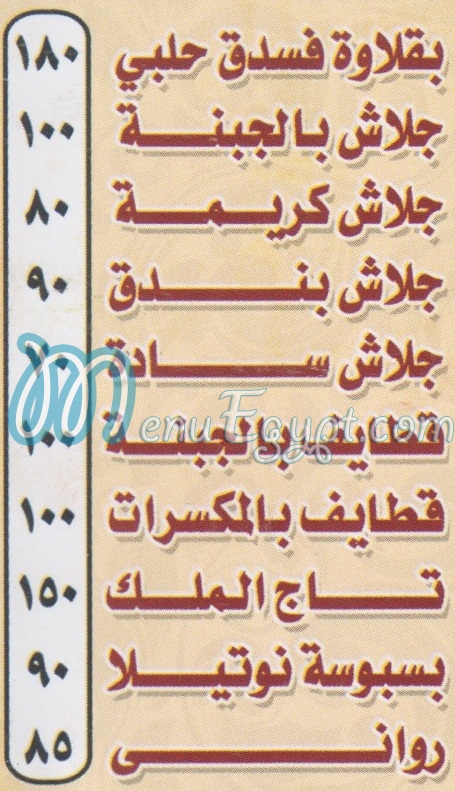 بقلاوة فسدق حلبي ١٨٠
جلاش بالجبنة ١٠٠
جلاش كريمة ٨٠
جلاش بندق ٩٠
جلاش سادة
MenuEgypt.com
قطايف بالجبنة ١٠٠
قطايف بالمكسرات ١٠٠
تاج الملك ١٥٠
بسبوسة نوتيلا ٩٠
روانى ٨٥